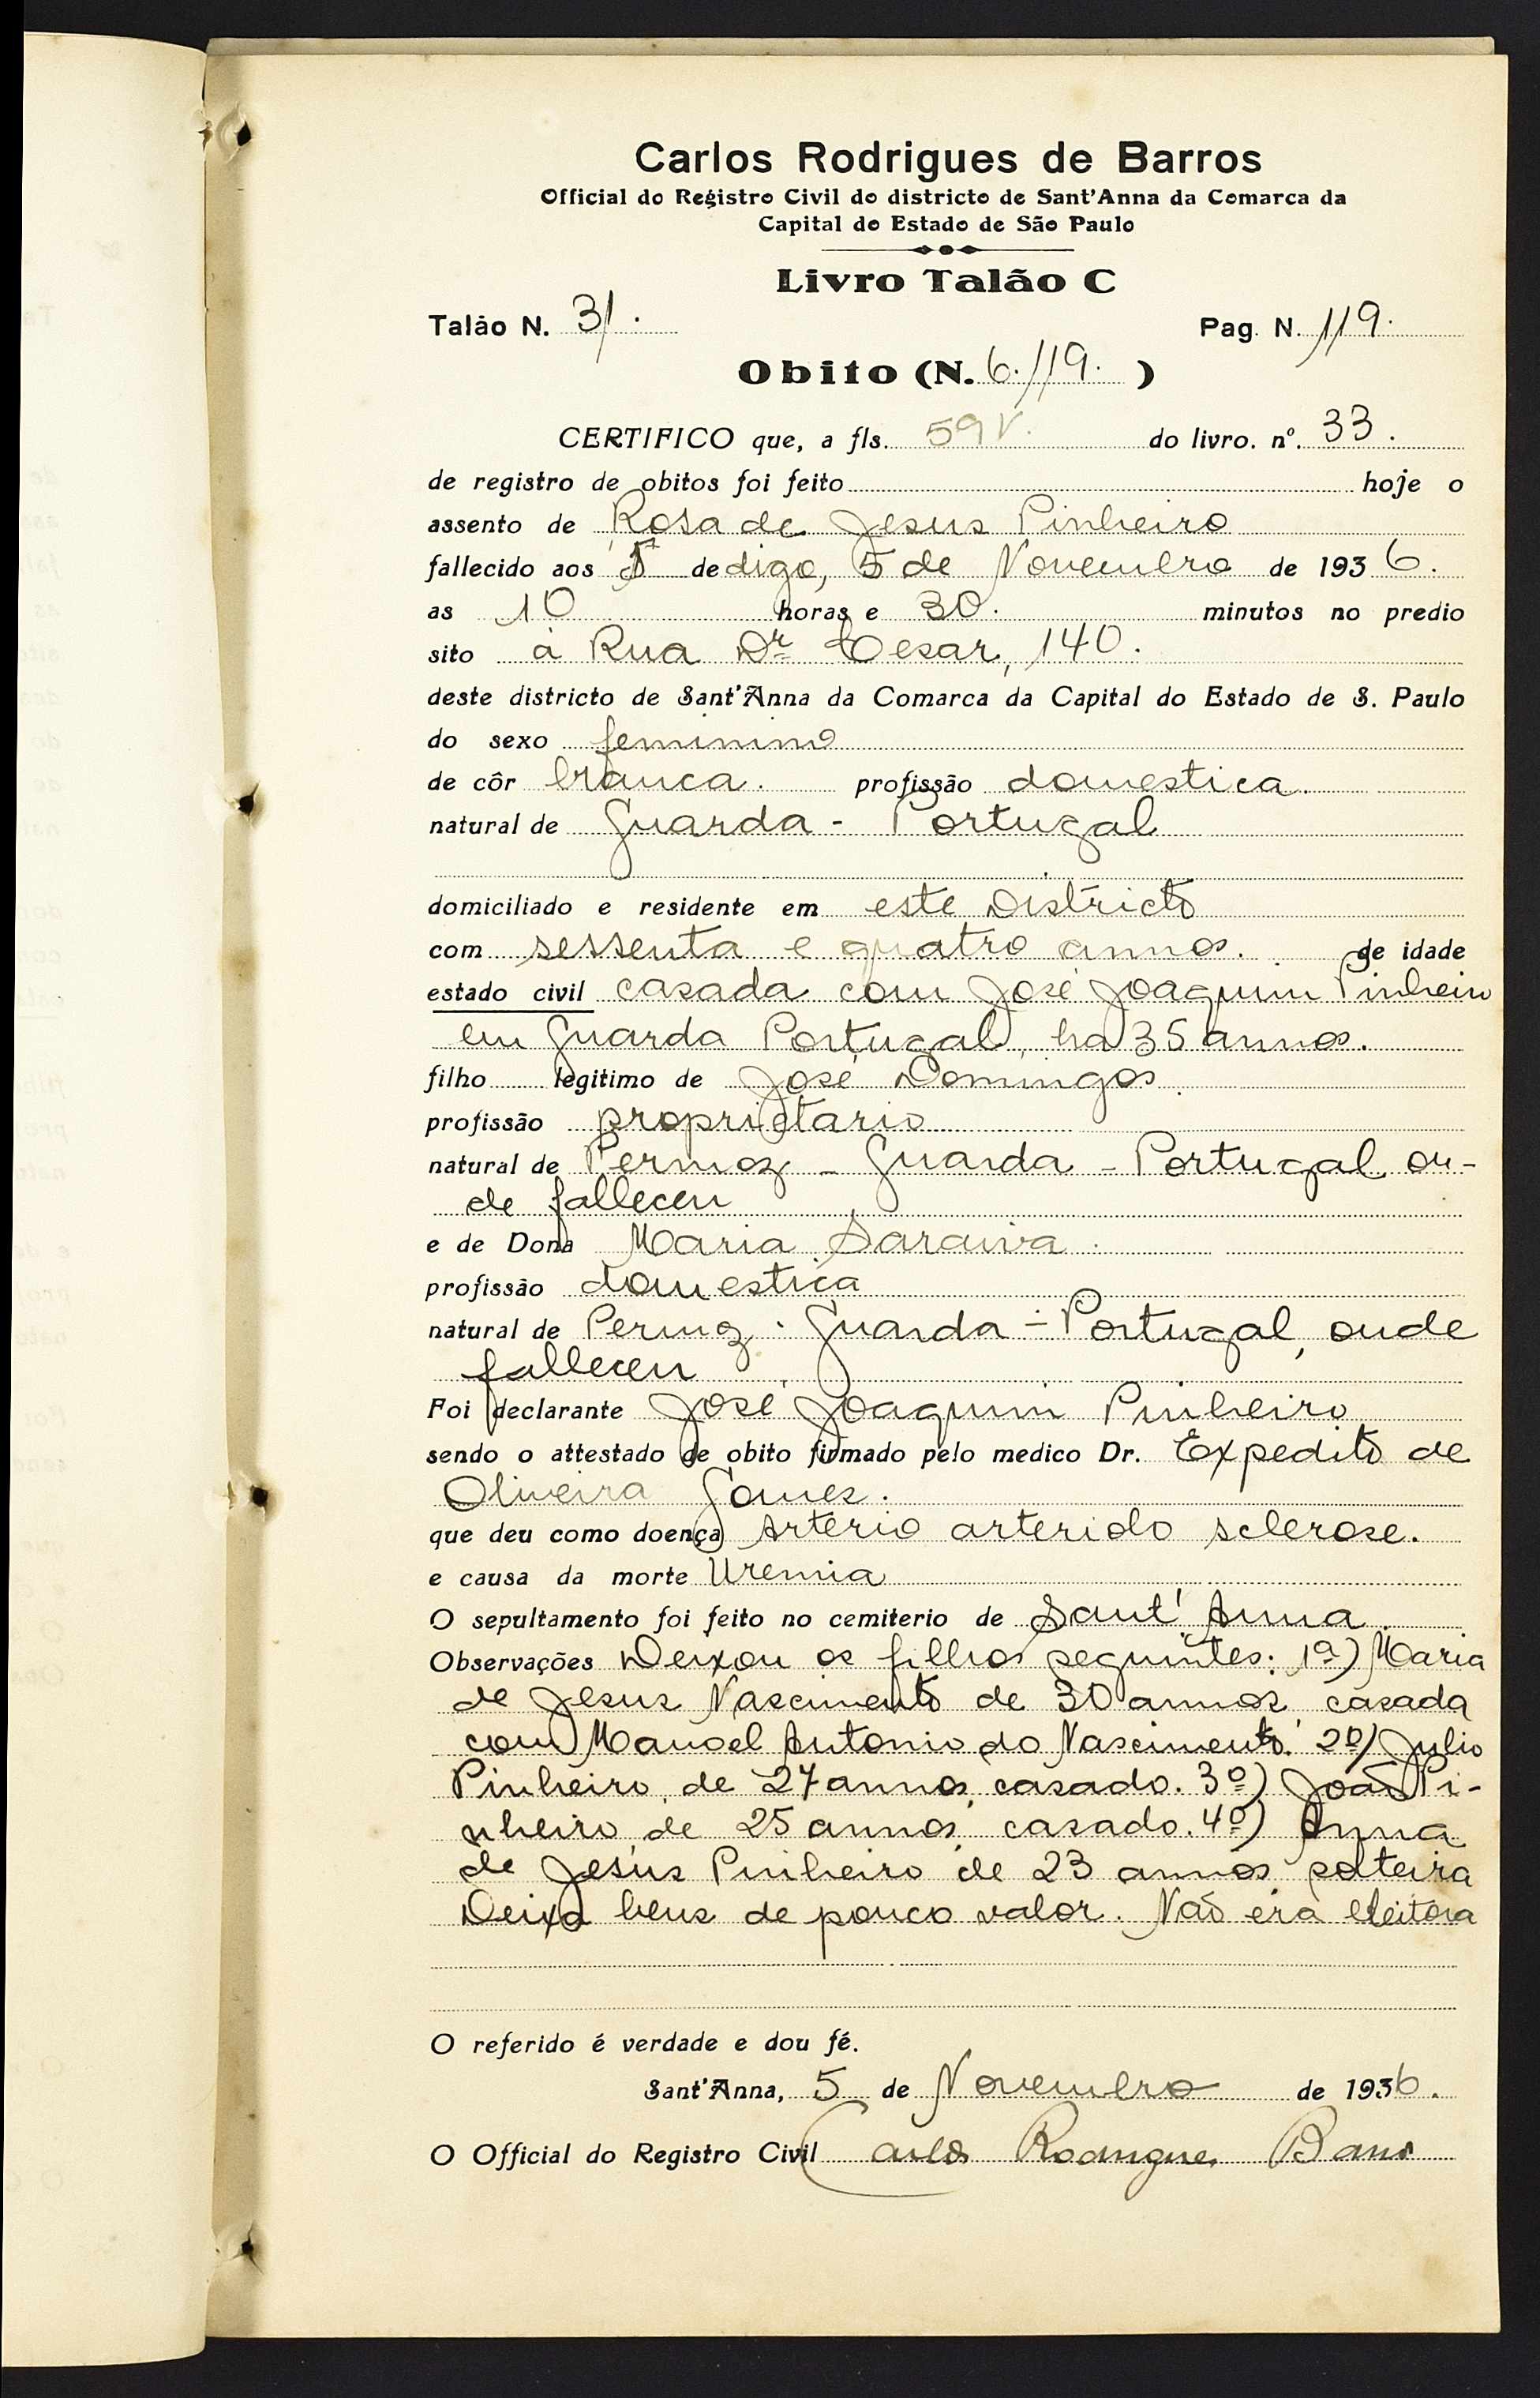 Carlos Rodrigues de Barros
Official do Registro Civil do districto de Sant'Anna da Comarca da
Capital do Estado de São Paulo
Livro Talão C
Talão N. 31. Pag. N. 119.
Obito (N. 6.119. )
CERTIFICO que, a fls. 59 v. do livro. nº. 33.
de registro de obitos foi feito hoje o
assento de Rosa de Jesus Pinheiro
fallecido aos 5 de digo, 5 de Novembro de 1936.
as 10 horas e 30. minutos no predio
sito a Rua Dr. Cesar, 140.
deste districto de Sant'Anna da Comarca da Capital do Estado de S. Paulo
do sexo feminino
de côr branca. profissão domestica.
natural de Guarda - Portugal
domiciliado e residente em este Districto
com sessenta e quatro annos. de idade
estado civil casada com José Joaquim Pinheiro
em Guarda Portugal, ha 35 annos.
filho legitimo de José Domingos
profissão proprietario
natural de - Guarda - Portugal on-
de falleceu
e de Dona Maria Saraiva.
profissão domestica
natural de Guarda - Portugal, onde
falleceu
Foi declarante José Joaquim Pinheiro
sendo o attestado de obito firmado pelo medico Dr. Expedito de
Oliveira Gomes.
que deu como doença Arterio arteriolo sclerose.
e causa da morte Uremia
O sepultamento foi feito no cemiterio de Sant'Anna.
Observações Deixou os filhos seguintes: 1º) Maria
de Jesus Nascimento de 30 annos, casada
com Manoel Antonio do Nascimento. 2º) Julio
Pinheiro, de 27 annos, casado. 3º) João Pi-
nheiro de 25 annos, casado. 4º) Anna
de Jesus Pinheiro de 23 annos, solteira
Deixa bens de pouco valor. Não era eleitora
O referido é verdade e dou fé.
Sant'Anna, 5 de Novembro de 1936.
O Official do Registro Civil Carlos Rodrigues Barros